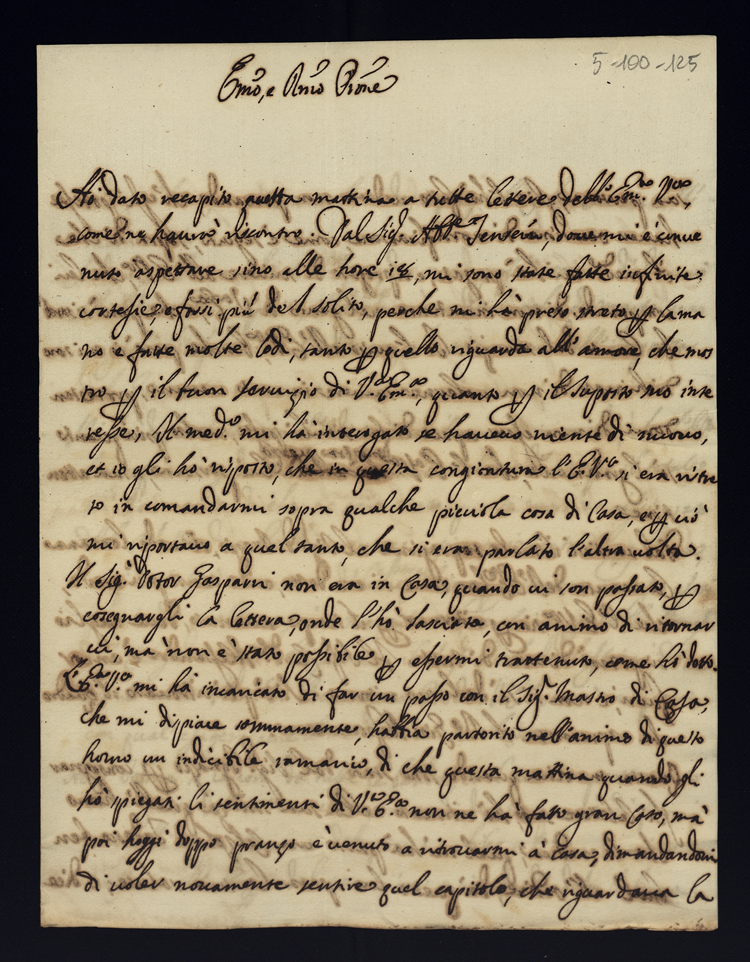 5-100-125
Emo, e Rmo Prone
Hò dato recapito questa mattina a tutte lettere dell' Em. V.,
come ne havrà riscontro. Dal Sig. Abbe, dove mi è conve
nuto aspettare sino alle hore 18, mi sono state fatte infinite
cortesie, e forsi più del solito, perche mi hà preso streto p la ma
no e fatte molte lodi, tanto p quello riguarda all'amore, che mos
tro p il buon servizio di V. Em., quanto p il suposto mio inte
resse, Il med.o mi hà interogato se havevo niente di nuovo,
et io gli hò risposto, che in questa congiontura l'E. V. si era ristre
to in comandarmi sopra qualche picciola cosa di Casa, e p ciò
mi riportavo a quel tanto, che si era parlato l'altra volta.
Il Sig. Dotor Gasparri non era in Casa, quando vi son passato, p
cosegnargli la lettera, onde l'hò lasciata, con animo di ritornar
vi, mà non è stato possibile p essermi trattenuto, come hò detto.
L'Em. V. mi hà incaricato di far un passo con il Sig. Mastro di Casa,
che mi dispiace sommamente, habbia partorito nell'animo di questo
homo un indicibile ramarico, di che questa mattina quando gli
hò spiegati li sentimenti di V. E. non ne hà fatto gran caso, mà
poi hoggi doppo pranzo è venuto a ritrovarmi à Casa, dimandandomi
di voler novamente sentire quel capitolo, che riguardava la